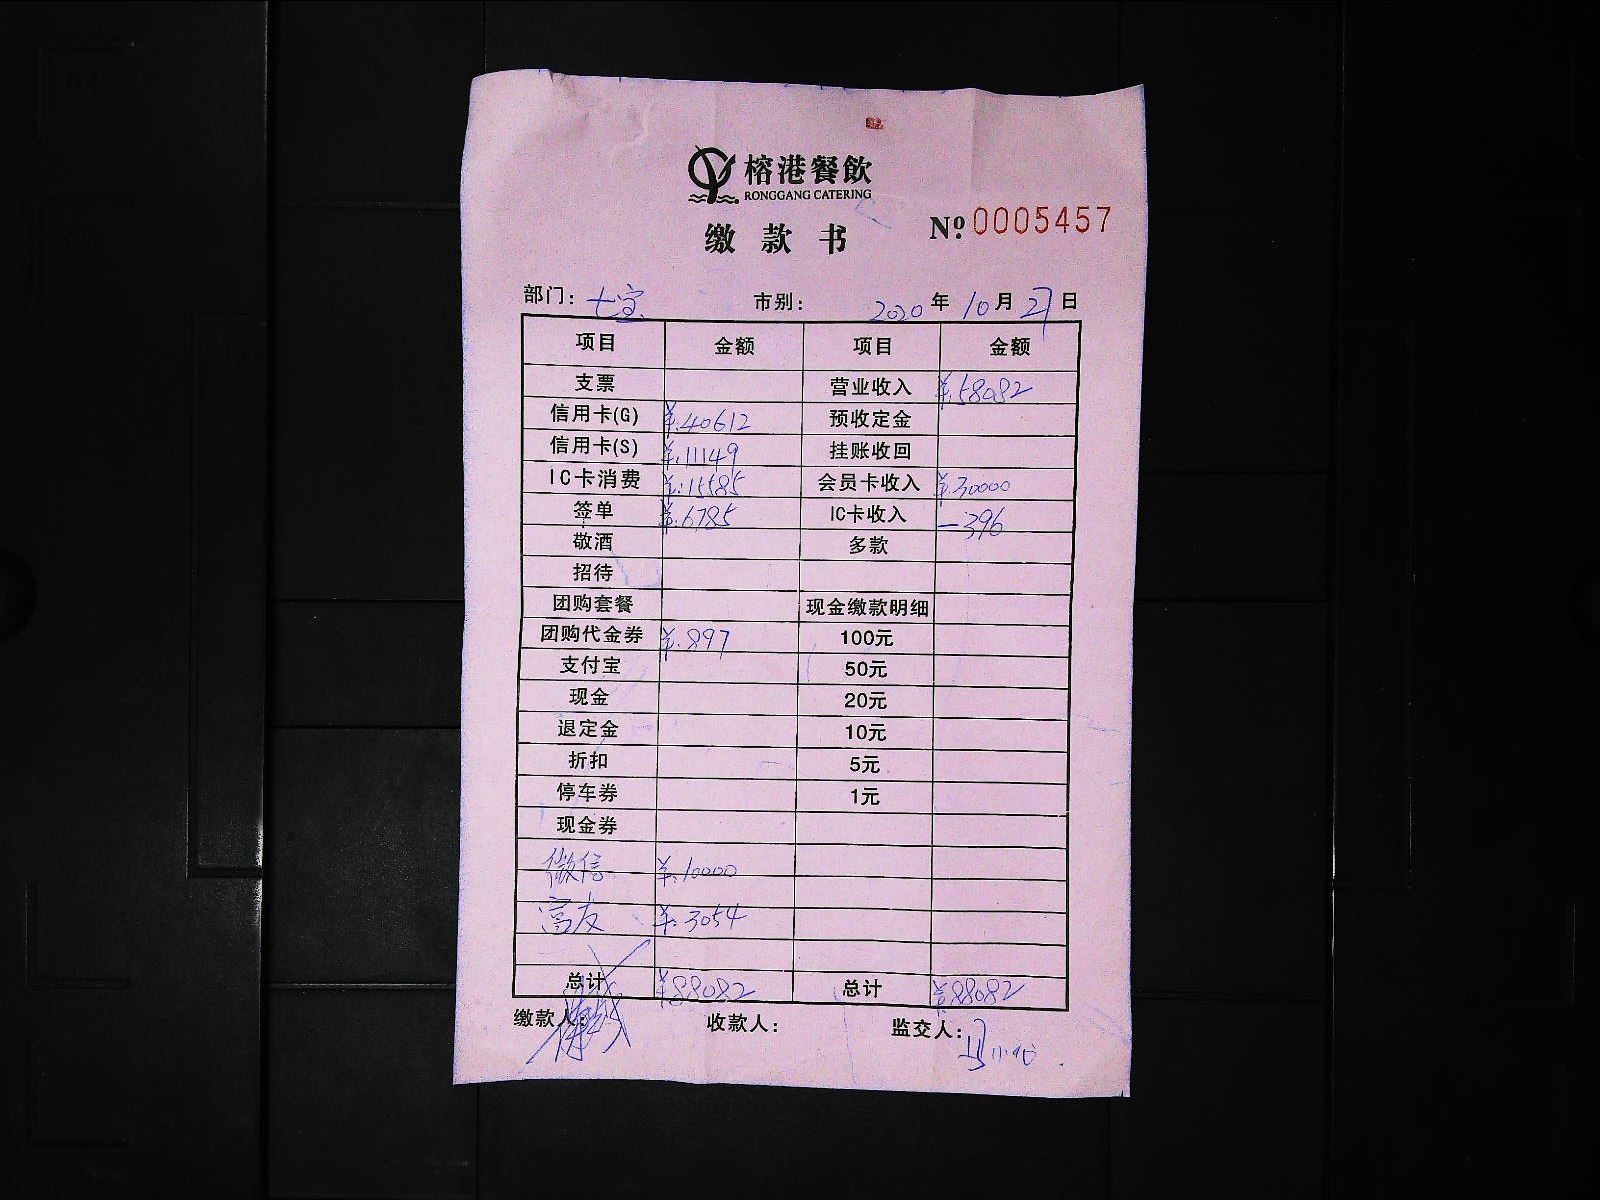 榕港餐飲
RONGGANG CATERING
缴款书
№ 0005457
部门： 市别： 2020 年 10 月 27 日
项目 金额 项目 金额
支票 营业收入 ¥.58082
信用卡(G) ¥.40612 预收定金
信用卡(S) ¥.11149 挂账收回
IC卡消费 ¥.15585 会员卡收入 ¥.30000
签单 ¥.6785 IC卡收入 -396
敬酒 多款
招待
团购套餐 现金缴款明细
团购代金券 ¥.897 100元
支付宝 50元
现金 20元
退定金 10元
折扣 5元
停车券 1元
现金券
微信 ¥.10000
¥.3054
总计 ¥88082 总计 ¥88082
缴款人： 收款人： 监交人：